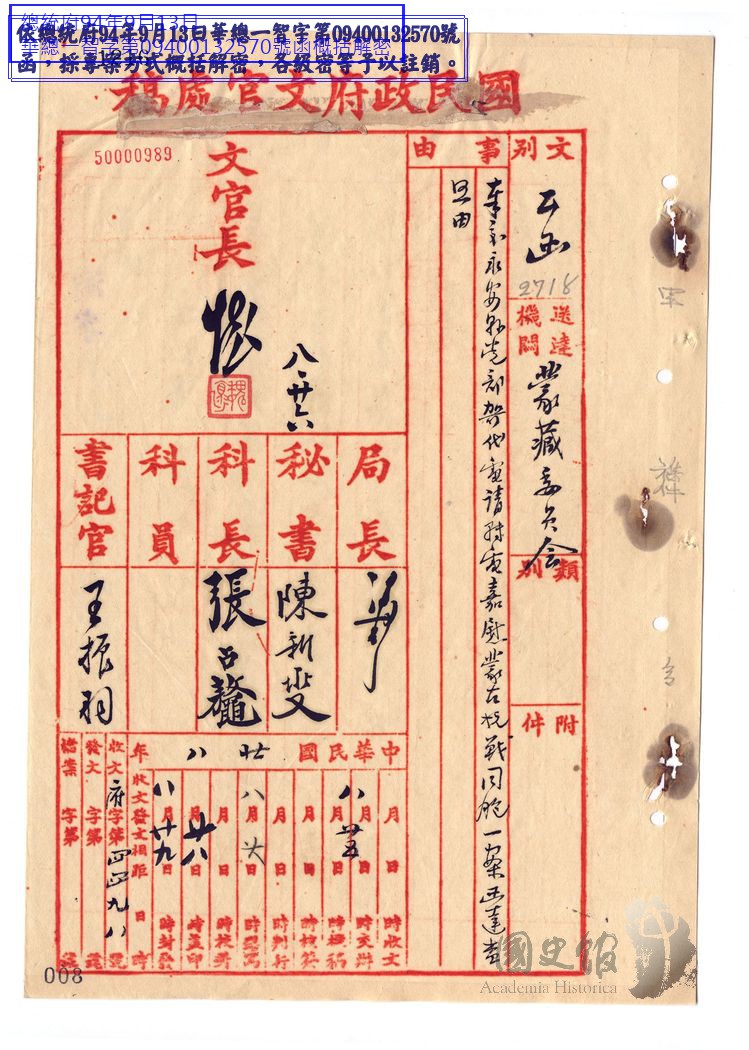 總統府94年9月13日
華總一智字第09400132570號函概括解密
依總統府94年9月13日華總一智字第09400132570號
函，採專案方式概括解密，各級密等予以註銷。
國民政府文官處稿
文別
公函
2718
送達機關
蒙藏委員會
類別
附件
事由
奉交永安縣党部賀代電請致電嘉慰蒙古抗戰同胞一案函達查
照由
50000989
文官長
八、廿六
局長
秘書
陳新燮
科長
張呂鼇
科員
書記官
王振羽
中華民國廿八年
月日時收文
月日時交辦
八月廿五日時擬稿
月日時核簽
月日時判行
八月廿日時繕寫
月日時校對
八月廿八日時蓋印
八月廿九日時封發
收文發文相距日時
收文府字第四四九八號
發文字第號
檔案字第號
008
國史館
Academia Historica